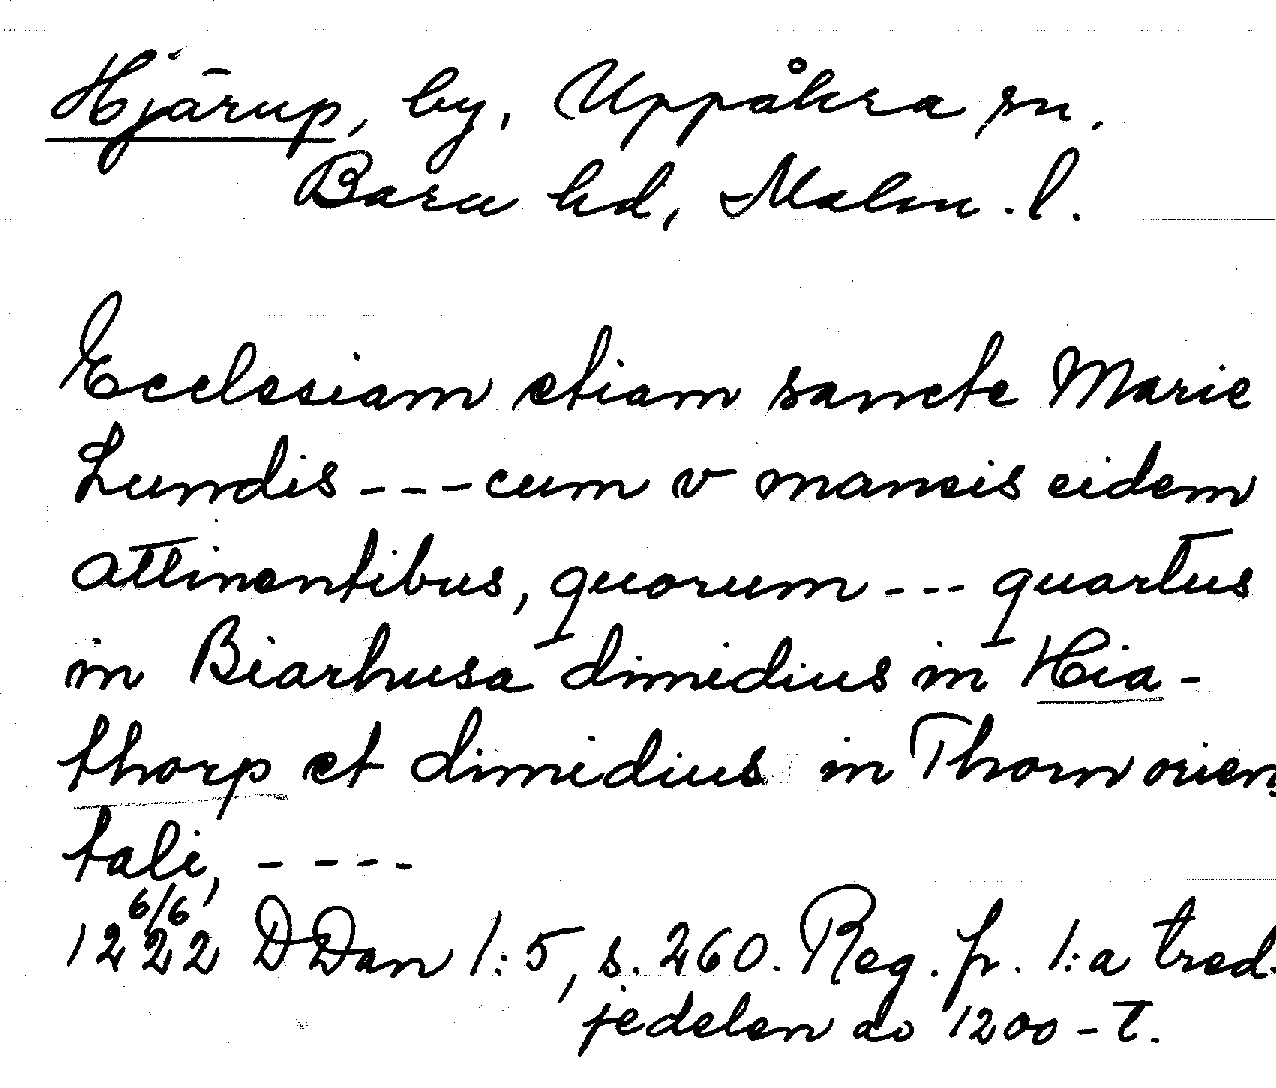 Hjärup, by, Uppåkra sn.
Bara hd, Malm. l.
Ecclesiam etiam sancte Marie
Lundis --- cum v mansis eidem
attinentibus, quorum --- quartus
in Biarhusa dimidius in Hia-
thorp et dimidius in Thorn orien-
tali, ----
6/6
1222 DDan 1:5, s. 260. Reg. fr. 1:a tred-
jedelen av 1200-t.